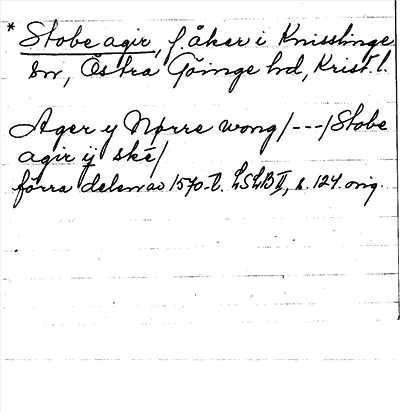 * Stobe agir, f. åker i Knisslinge
sn, Östra Göinge hd, Krist. l.
Ager y Nørre wong/---/Stobe
agir ÿ ské/
förra delen av 1570-t. LSLB II, s. 124. orig.